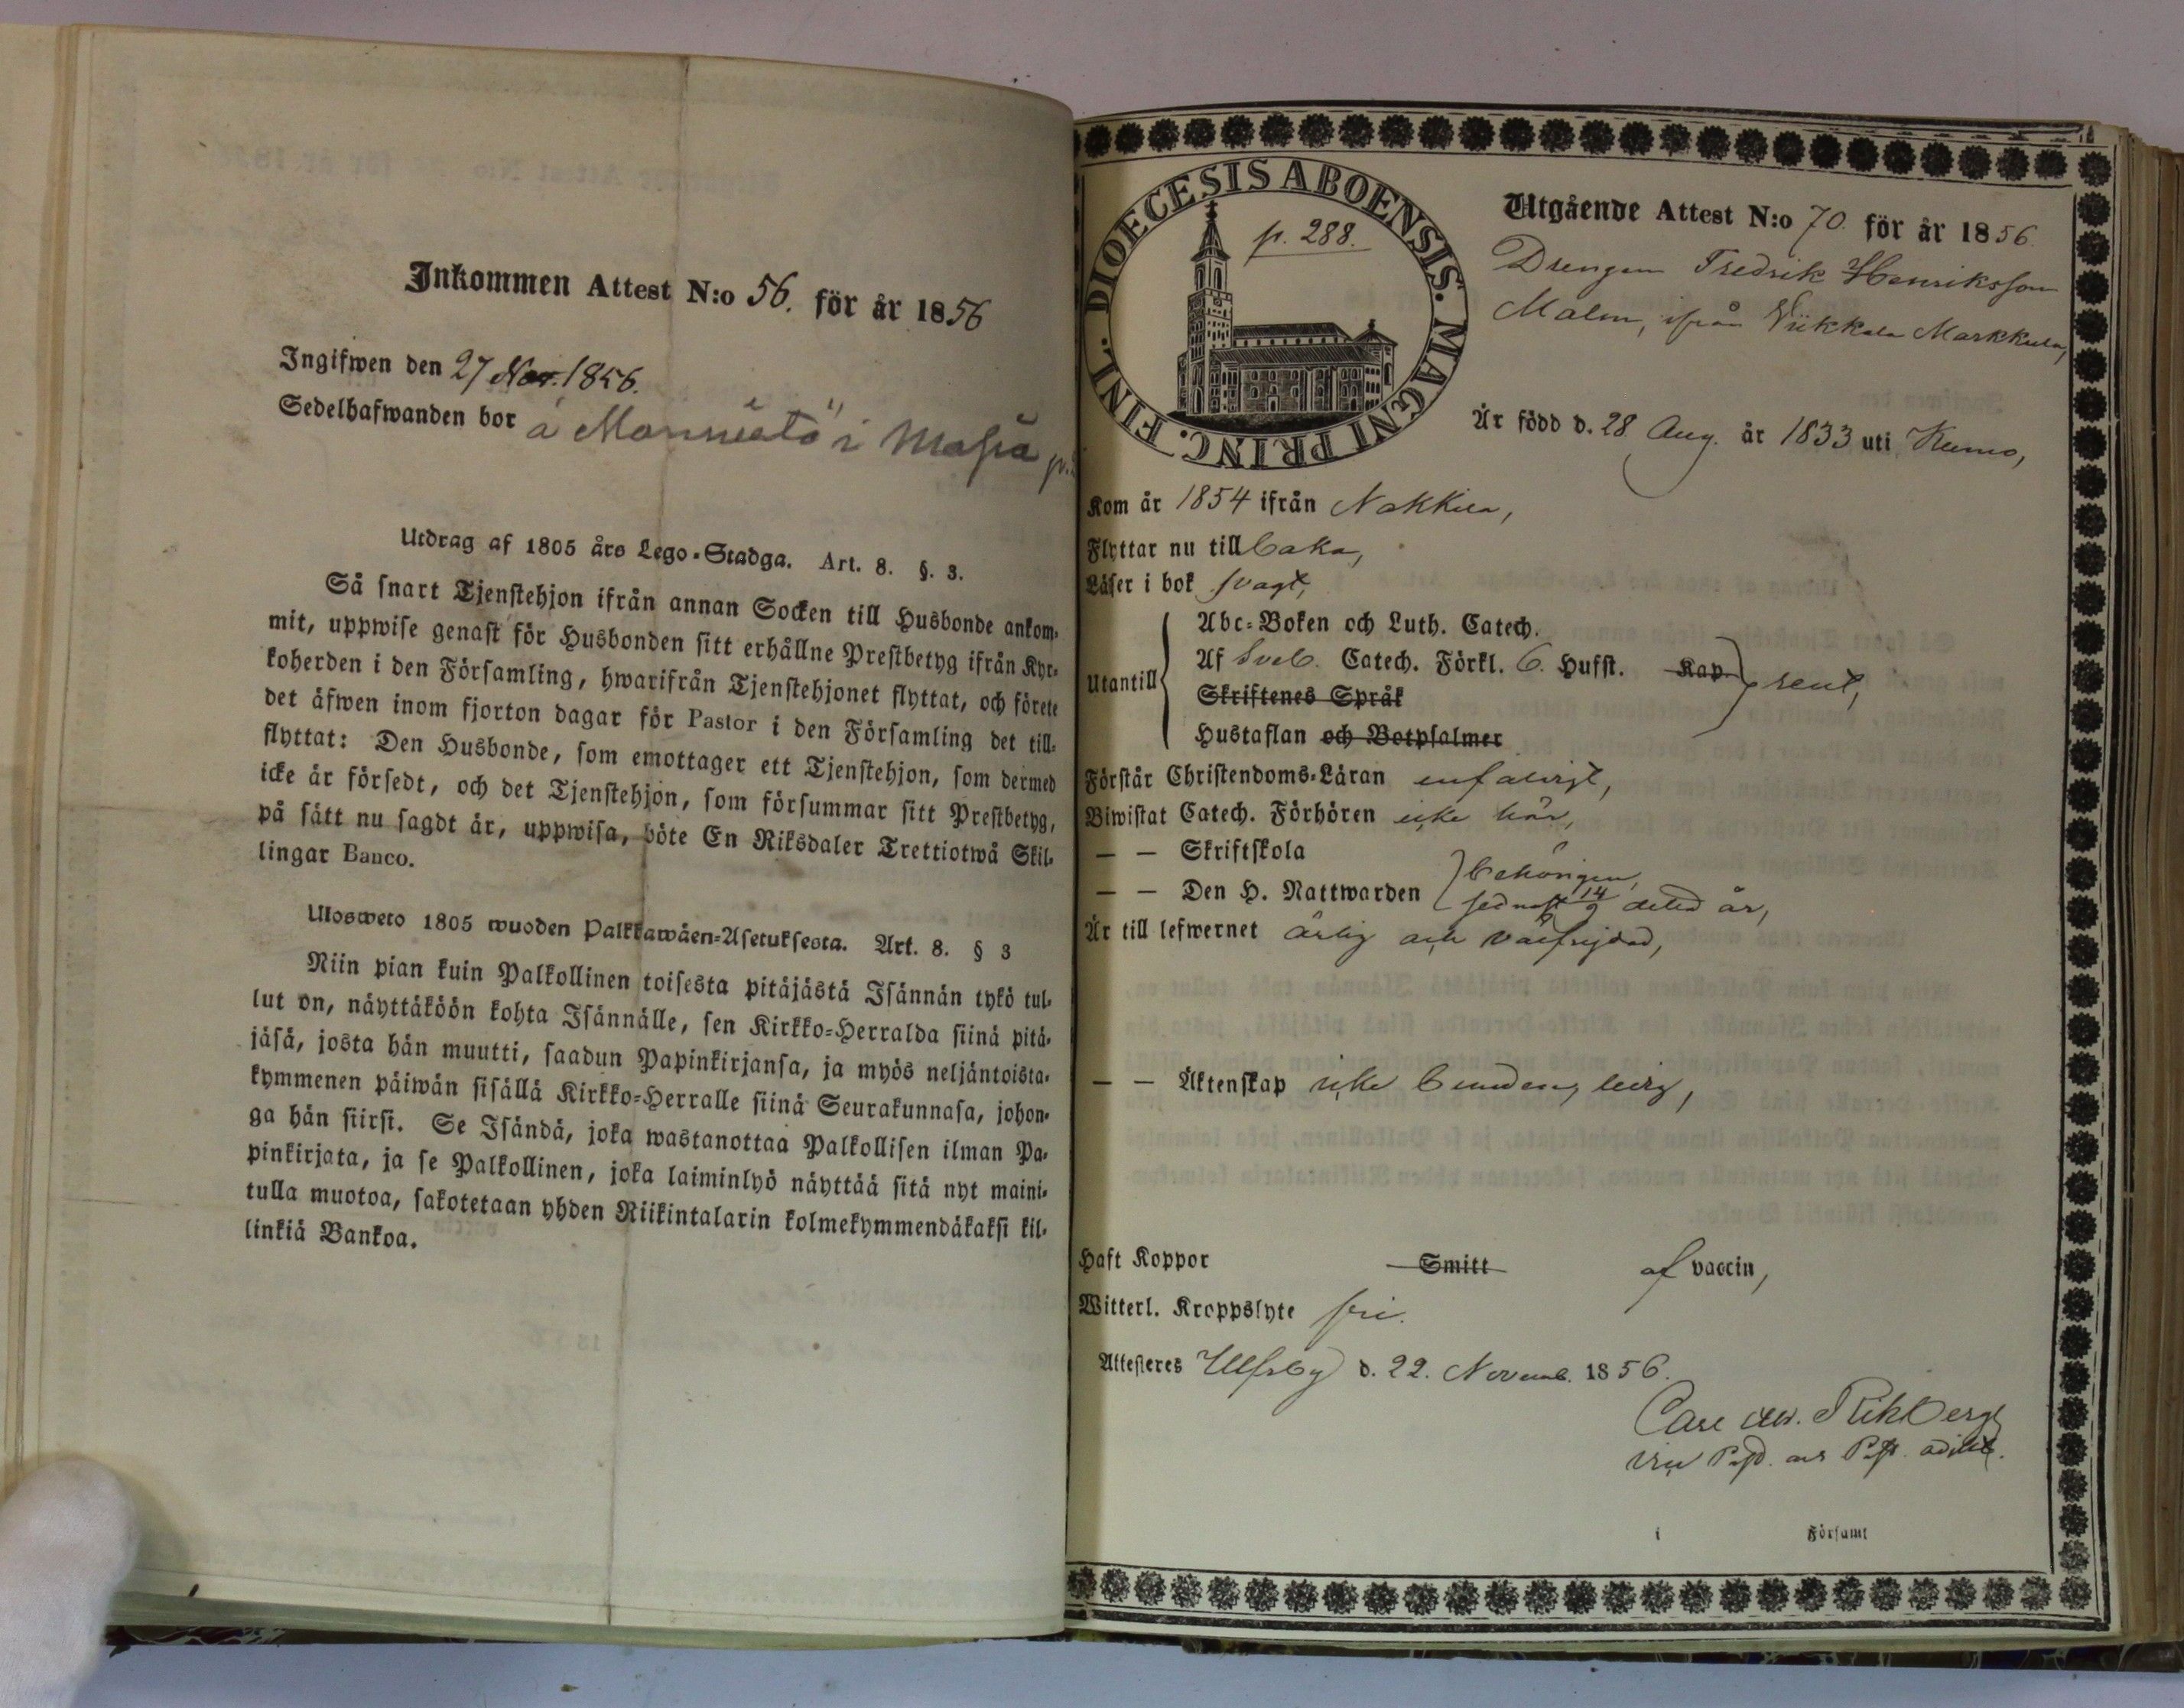 Inkommen Attest N:o 56. för år 1856
Ingifwen den 27 Nov. 1856.
Sedelhafwanden bor å i
Utdrag af 1805 års Lego-Stadga. Art. 8. §. 3.
Så snart Tjenstehjon ifrån annan Socken till Husbonde ankom-
mit, uppwise genast för Husbonden sitt erhållne Prestbetyg ifrån Kyr-
koherden i den Församling, hwarifrån Tjenstehjonet flyttat, och förete
det äfwen inom fjorton dagar för Pastor i den Församling det till-
flyttat: Den Husbonde, som emottager ett Tjenstehjon, som dermed
icke är försedt, och det Tjenstehjon, som försummar sitt Prestbetyg,
på sätt nu sagdt är, uppwisa, böte En Riksdaler Trettiotwå Skil-
lingar Banco.
Ulosweto 1805 wuoden Palkkawäen-Asetuksesta. Art. 8. § 3
Niin pian kuin Palkollinen toisesta pitäjästä Isännän tykö tul-
lut on, näyttäköön kohta Isännälle, sen Kirkko-Herralda siinä pitä-
jäsä, josta hän muutti, saadun Papinkirjansa, ja myös neljäntoista-
kymmenen päiwän sisällä Kirkko-Herralle siinä Seurakunnasa, johon-
ga hän siirsi. Se Isändä, joka wastanottaa Palkollisen ilman Pa-
pinkirjata, ja se Palkollinen, joka laiminlyö näyttää sitä nyt maini-
tulla muotoa, sakotetaan yhden Riikintalarin kolmekymmendäkaksi kil-
linkiä Bankoa.
DIOECESIS ABOENSIS. MAGNI PRINC. FINL.
p. 288.
Utgående Attest N:o 70. för år 1856.
Drengen Fredrik Henriksson
Malm, ifrån Viikkala Markkula,
Är född d. 28 Aug. år 1833 uti Kumo,
Kom år 1854 ifrån Nakkila,
Flyttar nu tillbaka,
Läser i bok svagt,
Utantill
Abc-Boken och Luth. Catech.
Af Sveb. Catech. Förkl. 6. Hufst. Kap.
Skriftenes Språk
Hustaflan och Botpsalmer
rent,
Förstår Christendoms-Läran enfaldigt,
Biwistat Catech. Förhören icke här,
— — Skriftskola
— — Den H. Nattwarden
behörigen,
sednast 14/9 detta år,
Är till lefwernet ärlig och välfrejdad,
— — Äktenskap icke bunden, ledig,
Haft Koppor Smitt af vaccin,
Witterl. Kroppslyte fri.
Attesteres Ulfsby d. 22. Novemb. 1856.
Carl
i Församl